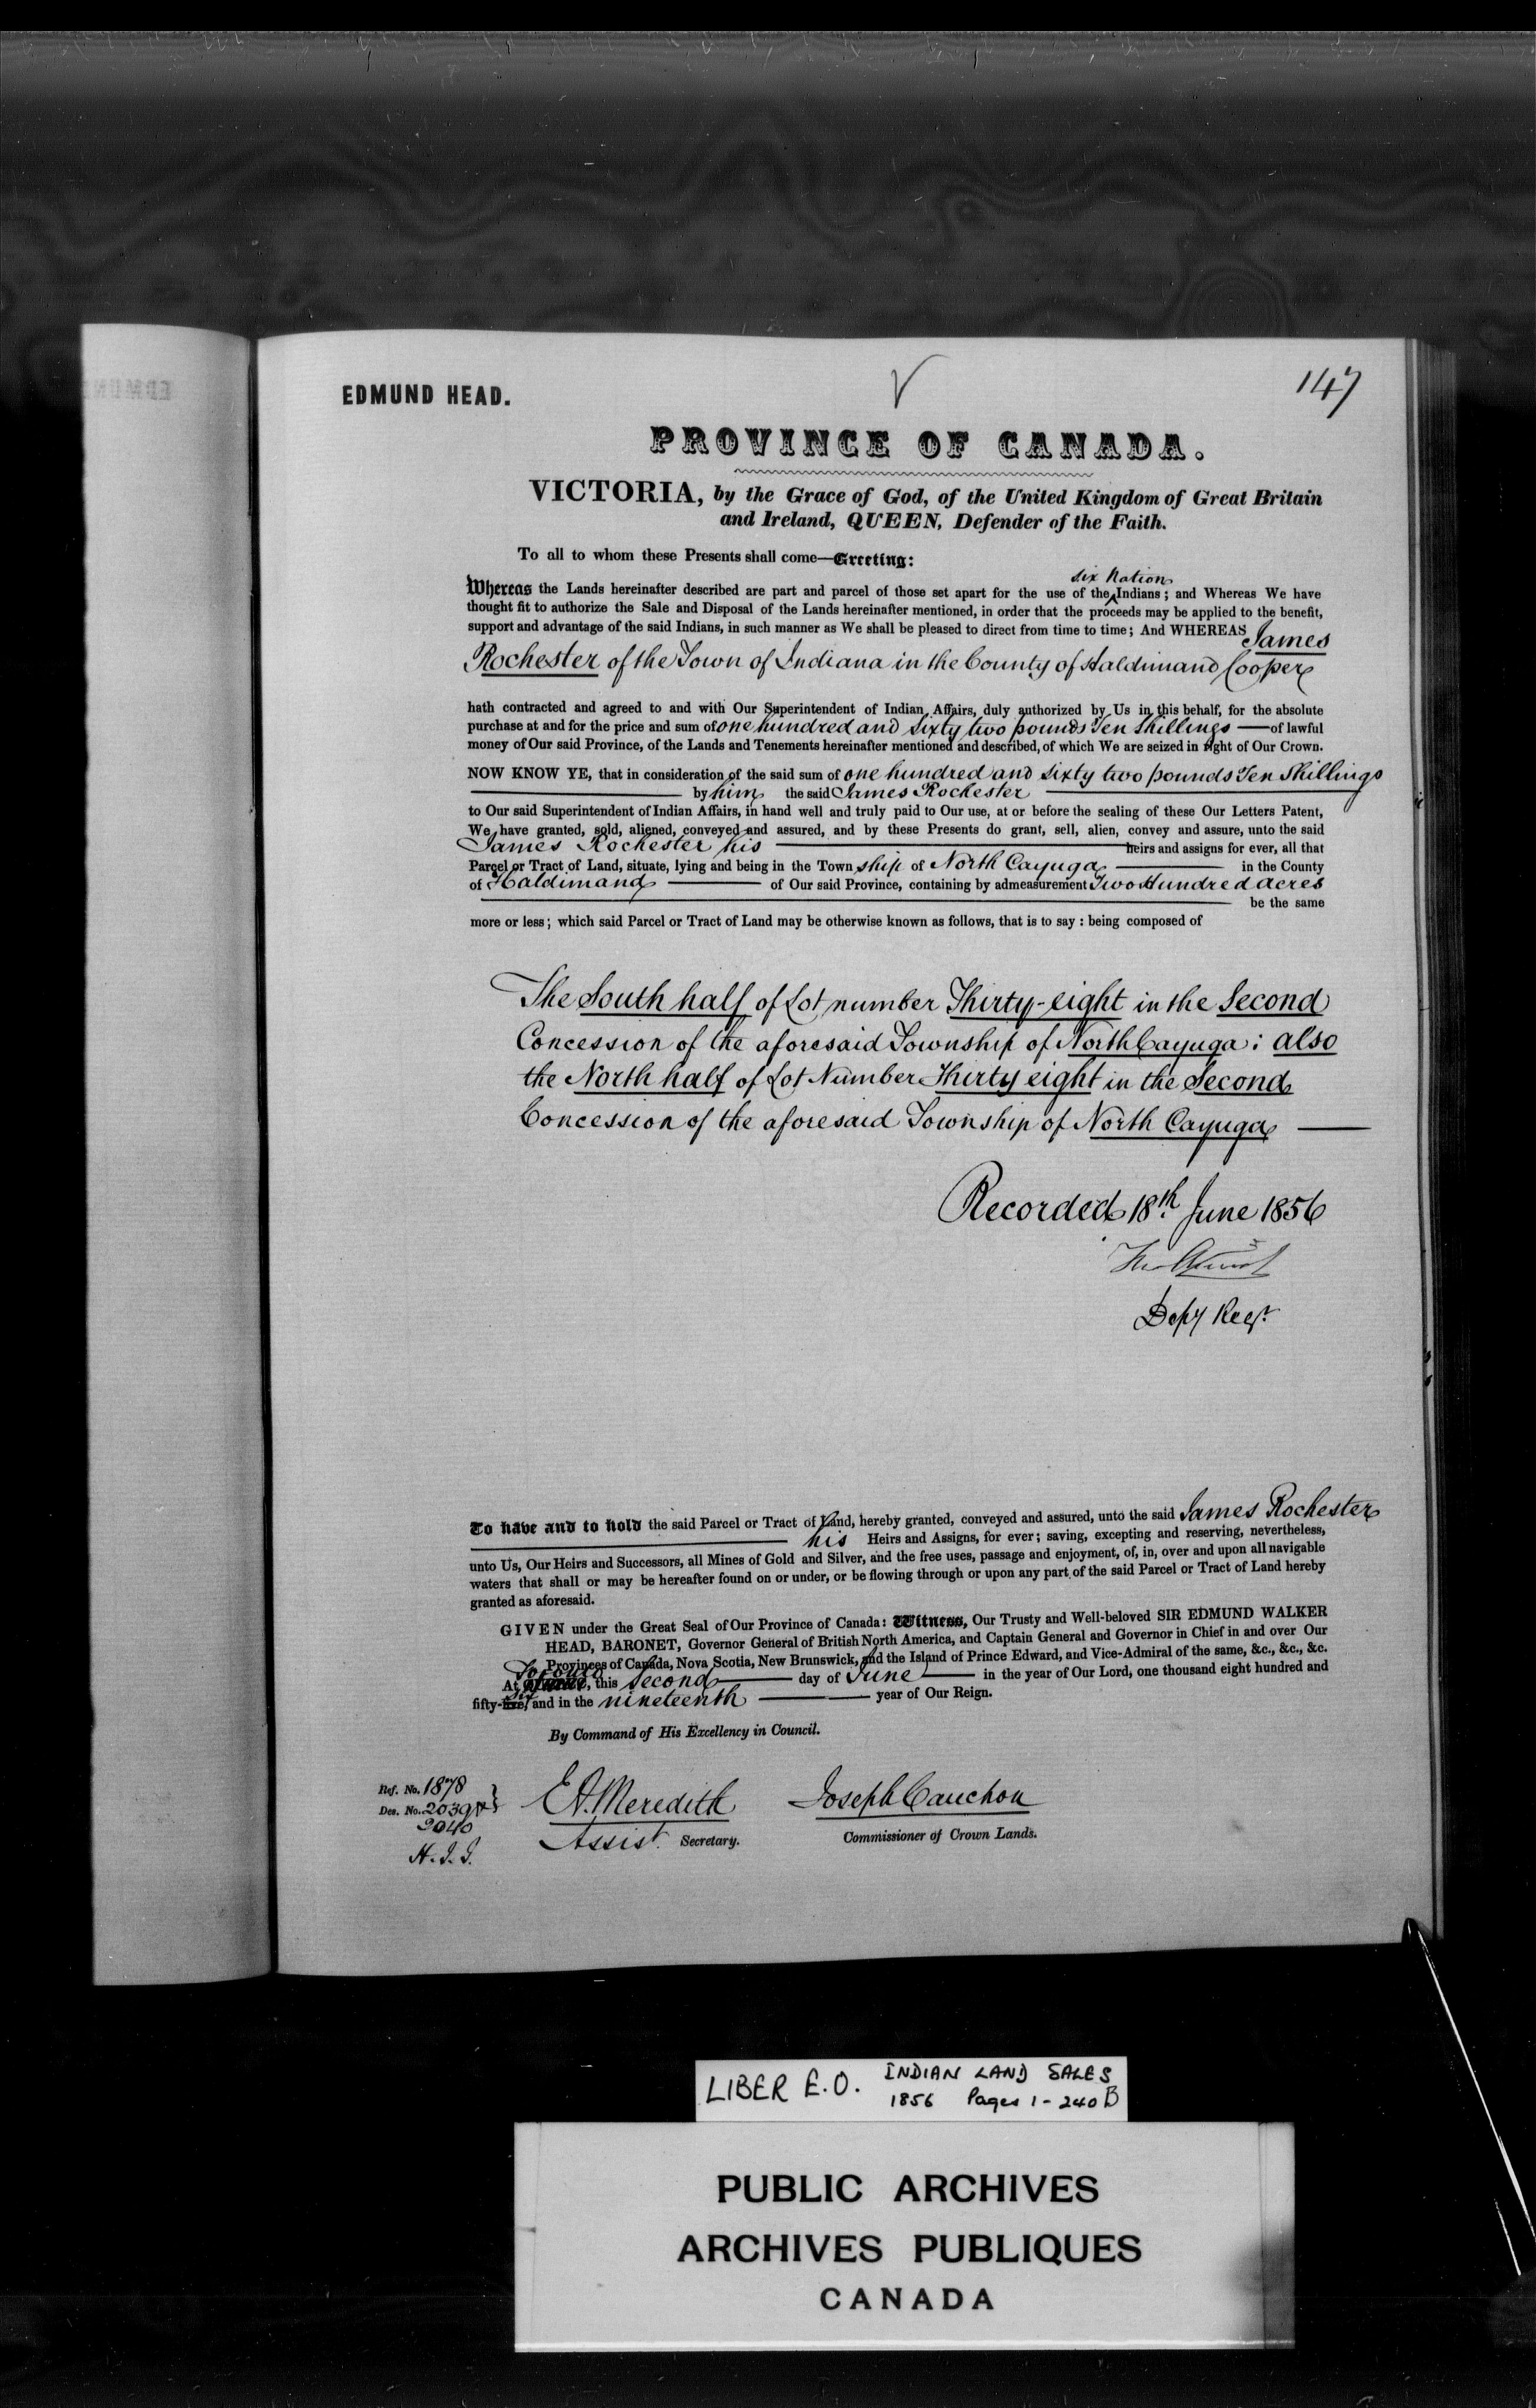 EDMUND HEAD.
147
PROVINCE OF CANADA.
VICTORIA, by the Grace of God, of the United Kingdom of Great Britain
and Ireland, QUEEN, Defender of the Faith.
To all to whom these Presents shall come—Greeting:
six Nation
Whereas the Lands hereinafter described are part and parcel of those set apart for the use of the Indians; and Whereas We have
thought fit to authorize the Sale and Disposal of the Lands hereinafter mentioned, in order that the proceeds may be applied to the benefit,
support and advantage of the said Indians, in such manner as We shall be pleased to direct from time to time; And WHEREAS James
Rochester of the Town of Indiana in the County of Haldimand Cooper
hath contracted and agreed to and with Our Superintendent of Indian Affairs, duly authorized by Us in this behalf, for the absolute
purchase at and for the price and sum of one hundred and sixty two pounds Ten Shillings — of lawful
money of Our said Province, of the Lands and Tenements hereinafter mentioned and described, of which We are seized in right of Our Crown.
NOW KNOW YE, that in consideration of the said sum of one hundred and sixty two pounds Ten Shillings
by him the said James Rochester
to Our said Superintendent of Indian Affairs, in hand well and truly paid to Our use, at or before the sealing of these Our Letters Patent,
We have granted, sold, aliened, conveyed and assured, and by these Presents do grant, sell, alien, convey and assure, unto the said
James Rochester his heirs and assigns for ever, all that
Parcel or Tract of Land, situate, lying and being in the Town ship of North Cayuga in the County
of Haldimand of Our said Province, containing by admeasurement Two Hundred acres
be the same
more or less; which said Parcel or Tract of Land may be otherwise known as follows, that is to say: being composed of
The South half of Lot number Thirty-eight in the Second
Concession of the aforesaid Township of North Cayuga; also
the North half of Lot Number Thirty eight in the Second
Concession of the aforesaid Township of North Cayuga
Recorded 18th June 1856
Depy Regr.
To have and to hold the said Parcel or Tract of Land, hereby granted, conveyed and assured, unto the said James Rochester
his Heirs and Assigns, for ever; saving, excepting and reserving, nevertheless,
unto Us, Our Heirs and Successors, all Mines of Gold and Silver, and the free uses, passage and enjoyment, of, in, over and upon all navigable
waters that shall or may be hereafter found on or under, or be flowing through or upon any part of the said Parcel or Tract of Land hereby
granted as aforesaid.
GIVEN under the Great Seal of Our Province of Canada: Witness, Our Trusty and Well-beloved SIR EDMUND WALKER
HEAD, BARONET, Governor General of British North America, and Captain General and Governor in Chief in and over Our
Provinces of Canada, Nova Scotia, New Brunswick, and the Island of Prince Edward, and Vice-Admiral of the same, &c., &c., &c.
At Toronto, this Second day of June in the year of Our Lord, one thousand eight hundred and
fifty-six, and in the nineteenth year of Our Reign.
By Command of His Excellency in Council.
Ref. No. 1878
Des. No. 2039 &
2040
H.J.J.
E.A. Meredith
Assist. Secretary.
Joseph Cauchon
Commissioner of Crown Lands.
LIBER E.O. INDIAN LAND SALES
1856 Pages 1-240B
PUBLIC ARCHIVES
ARCHIVES PUBLIQUES
CANADA